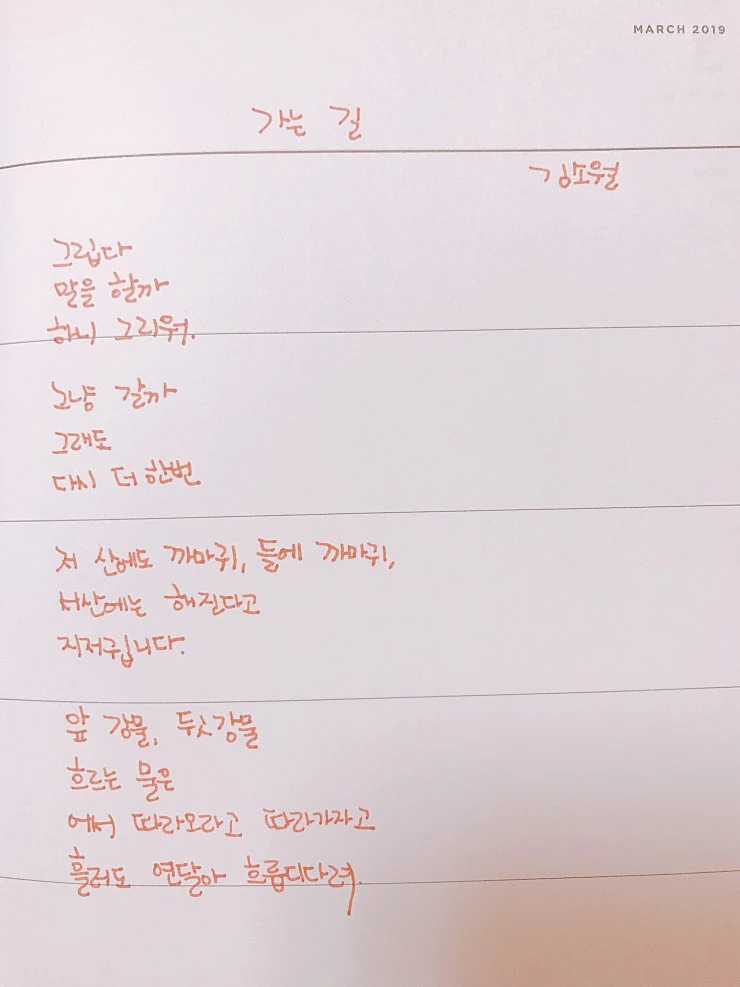 MARCH 2019
가는 길
김소월
그립다
말을 할까
하니 그리워.
그냥 갈까
그래도
다시 더 한번
저 산에도 까마귀, 들에 까마귀,
서산에는 해진다고
지저귑니다.
앞 강물, 뒷강물
흐르는 물은
어서 따라오라고 따라가자고
흘러도 연달아 흐릅디다려.